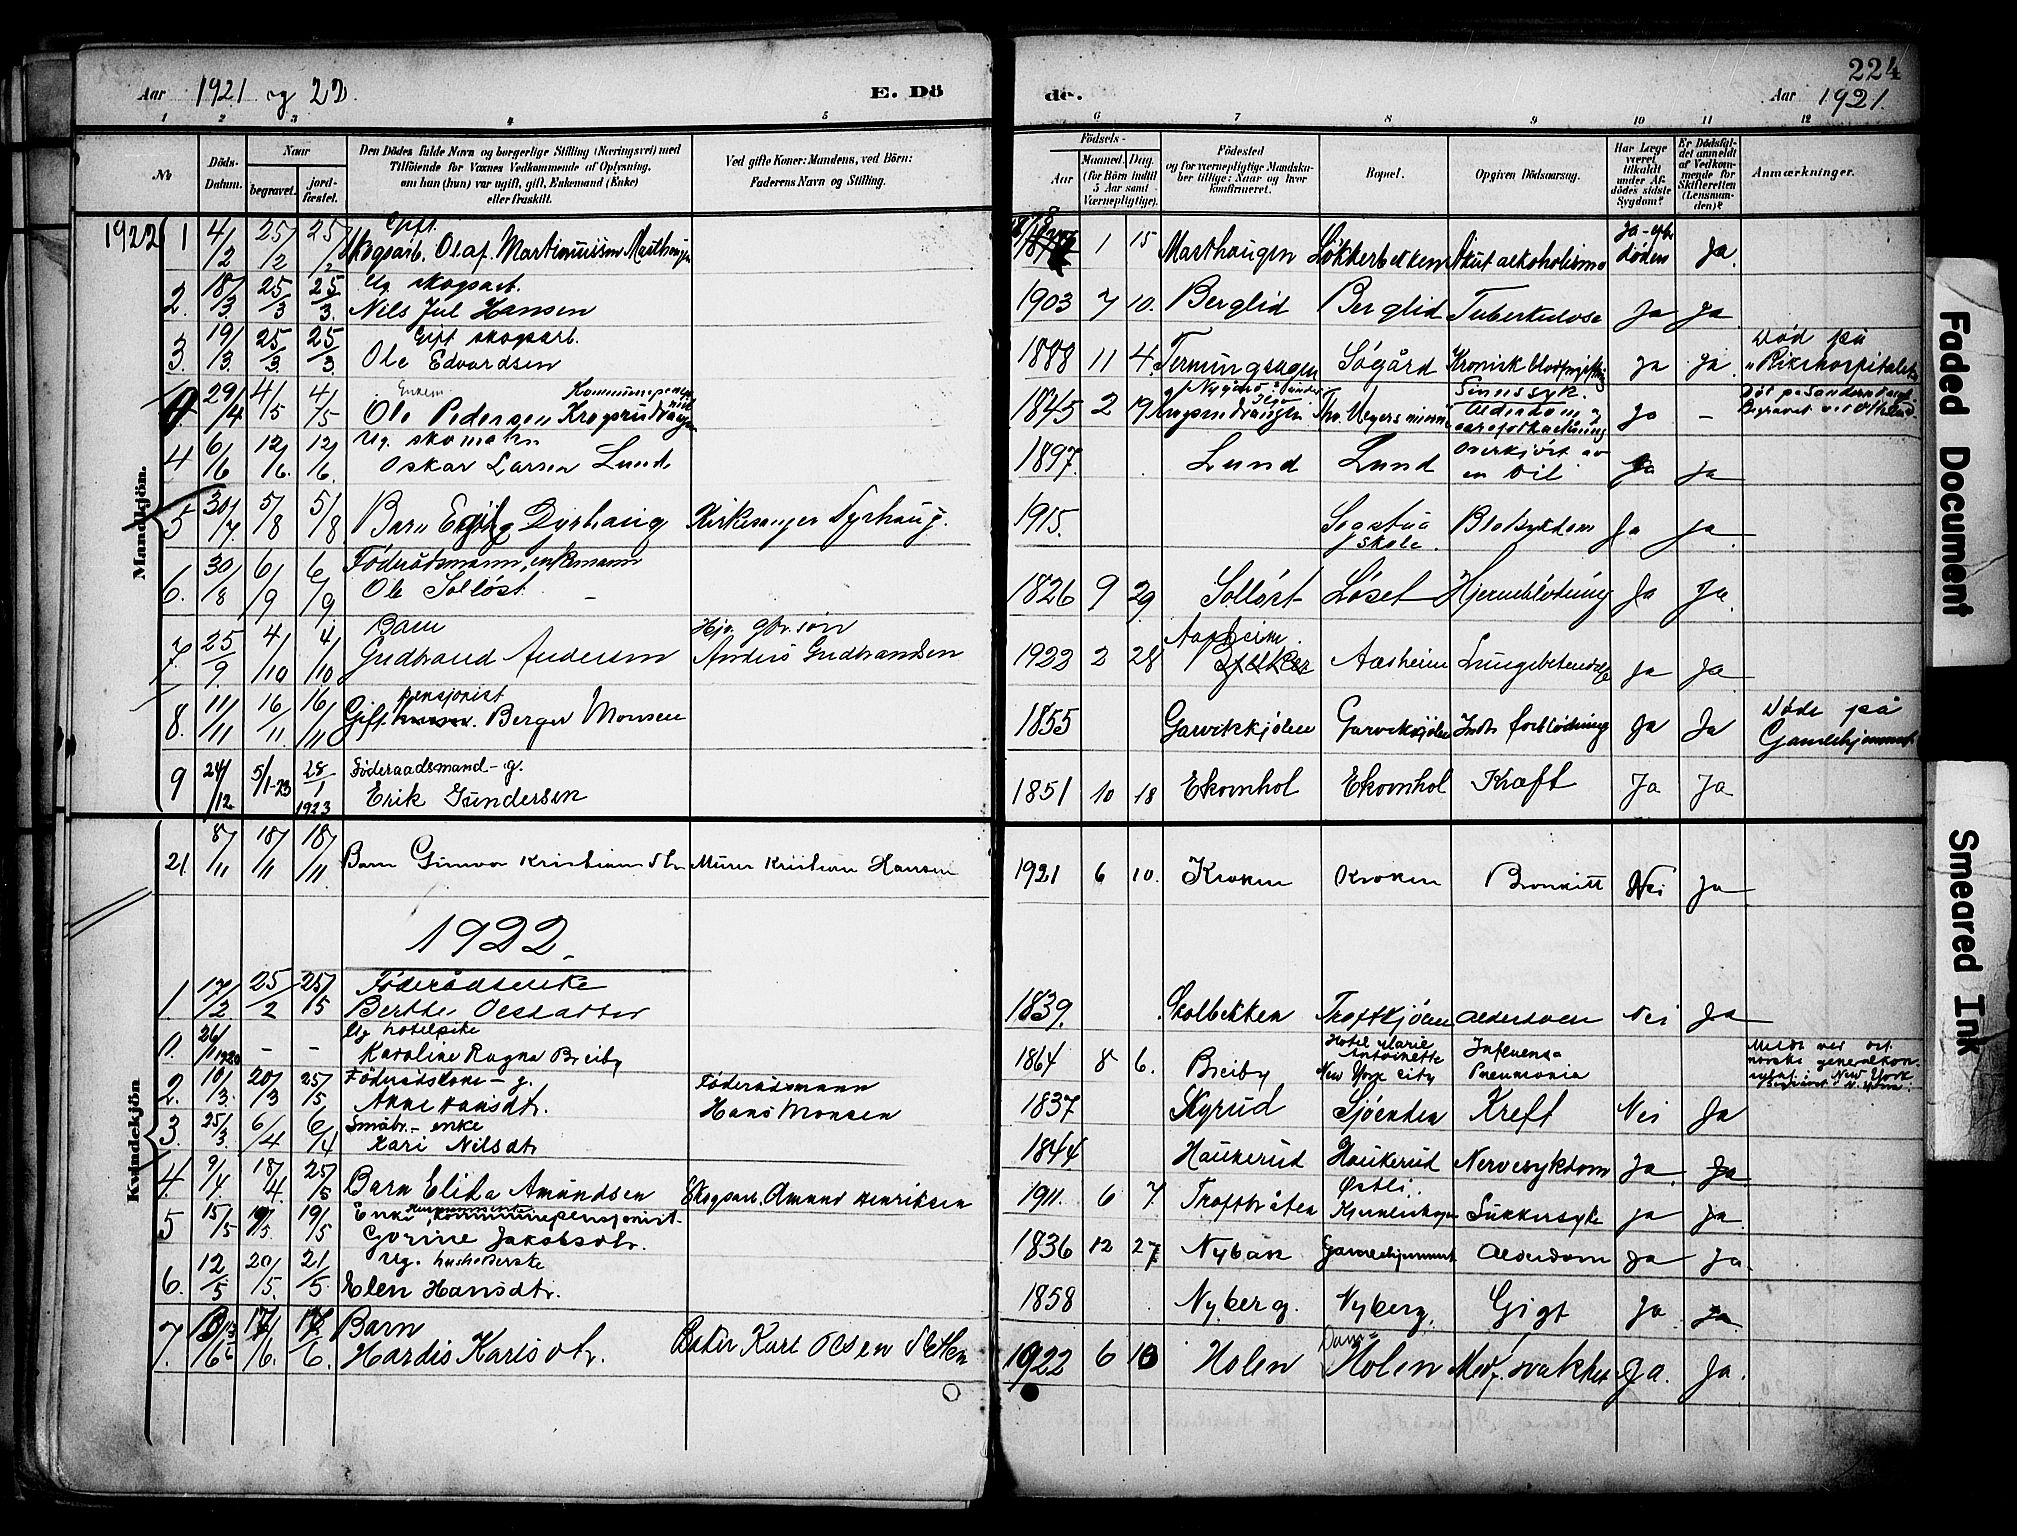 Aar 1921 og 22.
E. Dö
de.
224
Aar 1921.
1 2 3 4 5 6 7 8 9 10 11 12
No
Döds-Datum.
Naar
begravet.
jord-fæstet.
Den Dödes fulde Navn og borgerlige Stilling (Næringsvei) med
Tilföiende for Voxnes Vedkommende af Oplysning,
om han (hun) var ugift, gift, Enkemand (Enke)
eller fraskilt.
Ved gifte Koner: Mandens, ved Börn:
Faderens Navn og Stilling.
Födsels-
Aar
Maaned. Dag.
(for Börn indtil
5 Aar samt
Værnepligtige).
Födested
og for værnepligtige Mandskaber tillige: Naar og hvor
konfirmeret.
Bopæl.
Opgiven Dödsaarsag.
Har Læge været tilkaldt under Afdödes sidste Sygdom?
Er Dödsfaldet anmeldt af Vedkommende for Skifteretten (Lensmanden)?
Anmærkninger.
Mandkjön.
1922 1 4/2 25/2 25/2 Gift Skogsarb. Olaf Martinussen Masthaugen 1 15 Masthaugen Løkkerbekken Akut alkoholisme Ja døden Ja
2. 18/3 25/3 25/3 Ug. skogsarb. Nils Jul Hansen 1903 7 10. Berglid Berglid Tuberkulose Ja Ja
3. 19/3 25/3 25/3 Gift skogsarb. Ole Edvardsen 1888 11 4. Termungsagen Søgård Kronisk blodforgiftning Ja Ja. Død på "Rikshospitalet"
29/4 4/5 4/5 Enkem. Ole Pedersen Krogsrudvangen 1845 2 19 Thv. Meyers minne Sinnssyk. Alderdom Ja –
4 6/6 12/6. 12/6 Ug. skomaker Oskar Larsen Lund 1897. Lund Lund Overkjørt av en bil Ja Ja
5 30/7 5/8 5/8 Barn Egil Dyrhaug Kirkesanger Dyrhaug. 1915. skole. Ja Ja.
6. 30/8 6/9 6/9 Føderådsmann, enkemann Ole Solløst 1826 9 29. Solløst Løset Hjerneblødning Ja Ja.
7. 25/9. 4/10 4/10 Barn Gudbrand Andersen Anders Gudbrandsen 1922 2 28 Aasheim Lungebetendelse Ja Ja
8. 11/11 16/11. 16/11 Gift pensjonist Berger Monsen 1855 Garvikkjølen Garvikkjølen Indre forblødning Ja Ja Døde på Gamlehjemmet
9 24/12 5/1-23 28/1 1923 Føderaadsmand – g. Erik Gundersen 1851 10 18 Ekornhol Ekornhol Kræft Ja Ja
Kvindekjön
21 8/11 18/11 18/11 Barn Gunvor Kristiansdtr Murer Kristian Hansen 1921 6 10. Kroken Kroken Bronkitt Nei Ja
1922.
1. 17/2 25/2 25/5 Føderådsenke Berthe Olesdatter 1839. Stolbekken Troftkjølen Alderdom Nei Ja
26/11 1920 – – Ug hotelpike Karoline Ragna Breiby 1864 8 6. Breiby Hotel Marie Antoinette New York City Influensa Pneumonia Meldt ved det norske generalkonsulat i New York.
2. 10/3. 20/3 25/5 Føderådskone – g. Anne Hansdtr. Føderådsmann Hans Monsen 1837 Skyrud Sjøenden Kreft Nei Ja
3. 25/3. 6/4 6/4 Småbr.- enke Kari Nilsdtr 1844 Haukerud Haukerud Nervesykdom Ja. Ja
4. 9/4. 18/4. 25/5 Barn Elida Amundsen Skogsarb. Amund Henriksen 1911. 6 7 Troftbråten Østli. Sukkersyke Ja Ja.
5 15/5 19/5. 19/5 Enke, kommunepensjonist Gorine Jakobsdtr. 1836 12 27 Nybak Gamlehjemmet Alderdom Ja Ja.
6. 12/5 20/5. 21/5 Ug. husholderske Elen Hansdtr. 1858 Nyberg. Nyberg. Gigt Ja Ja
7. 17/6. Barn Hardis Karlsdtr. Karl Olsen Sletten 1922 6 Holen Holen Medf. svakhet Ja. Ja.
Faded Document
Smeared Ink